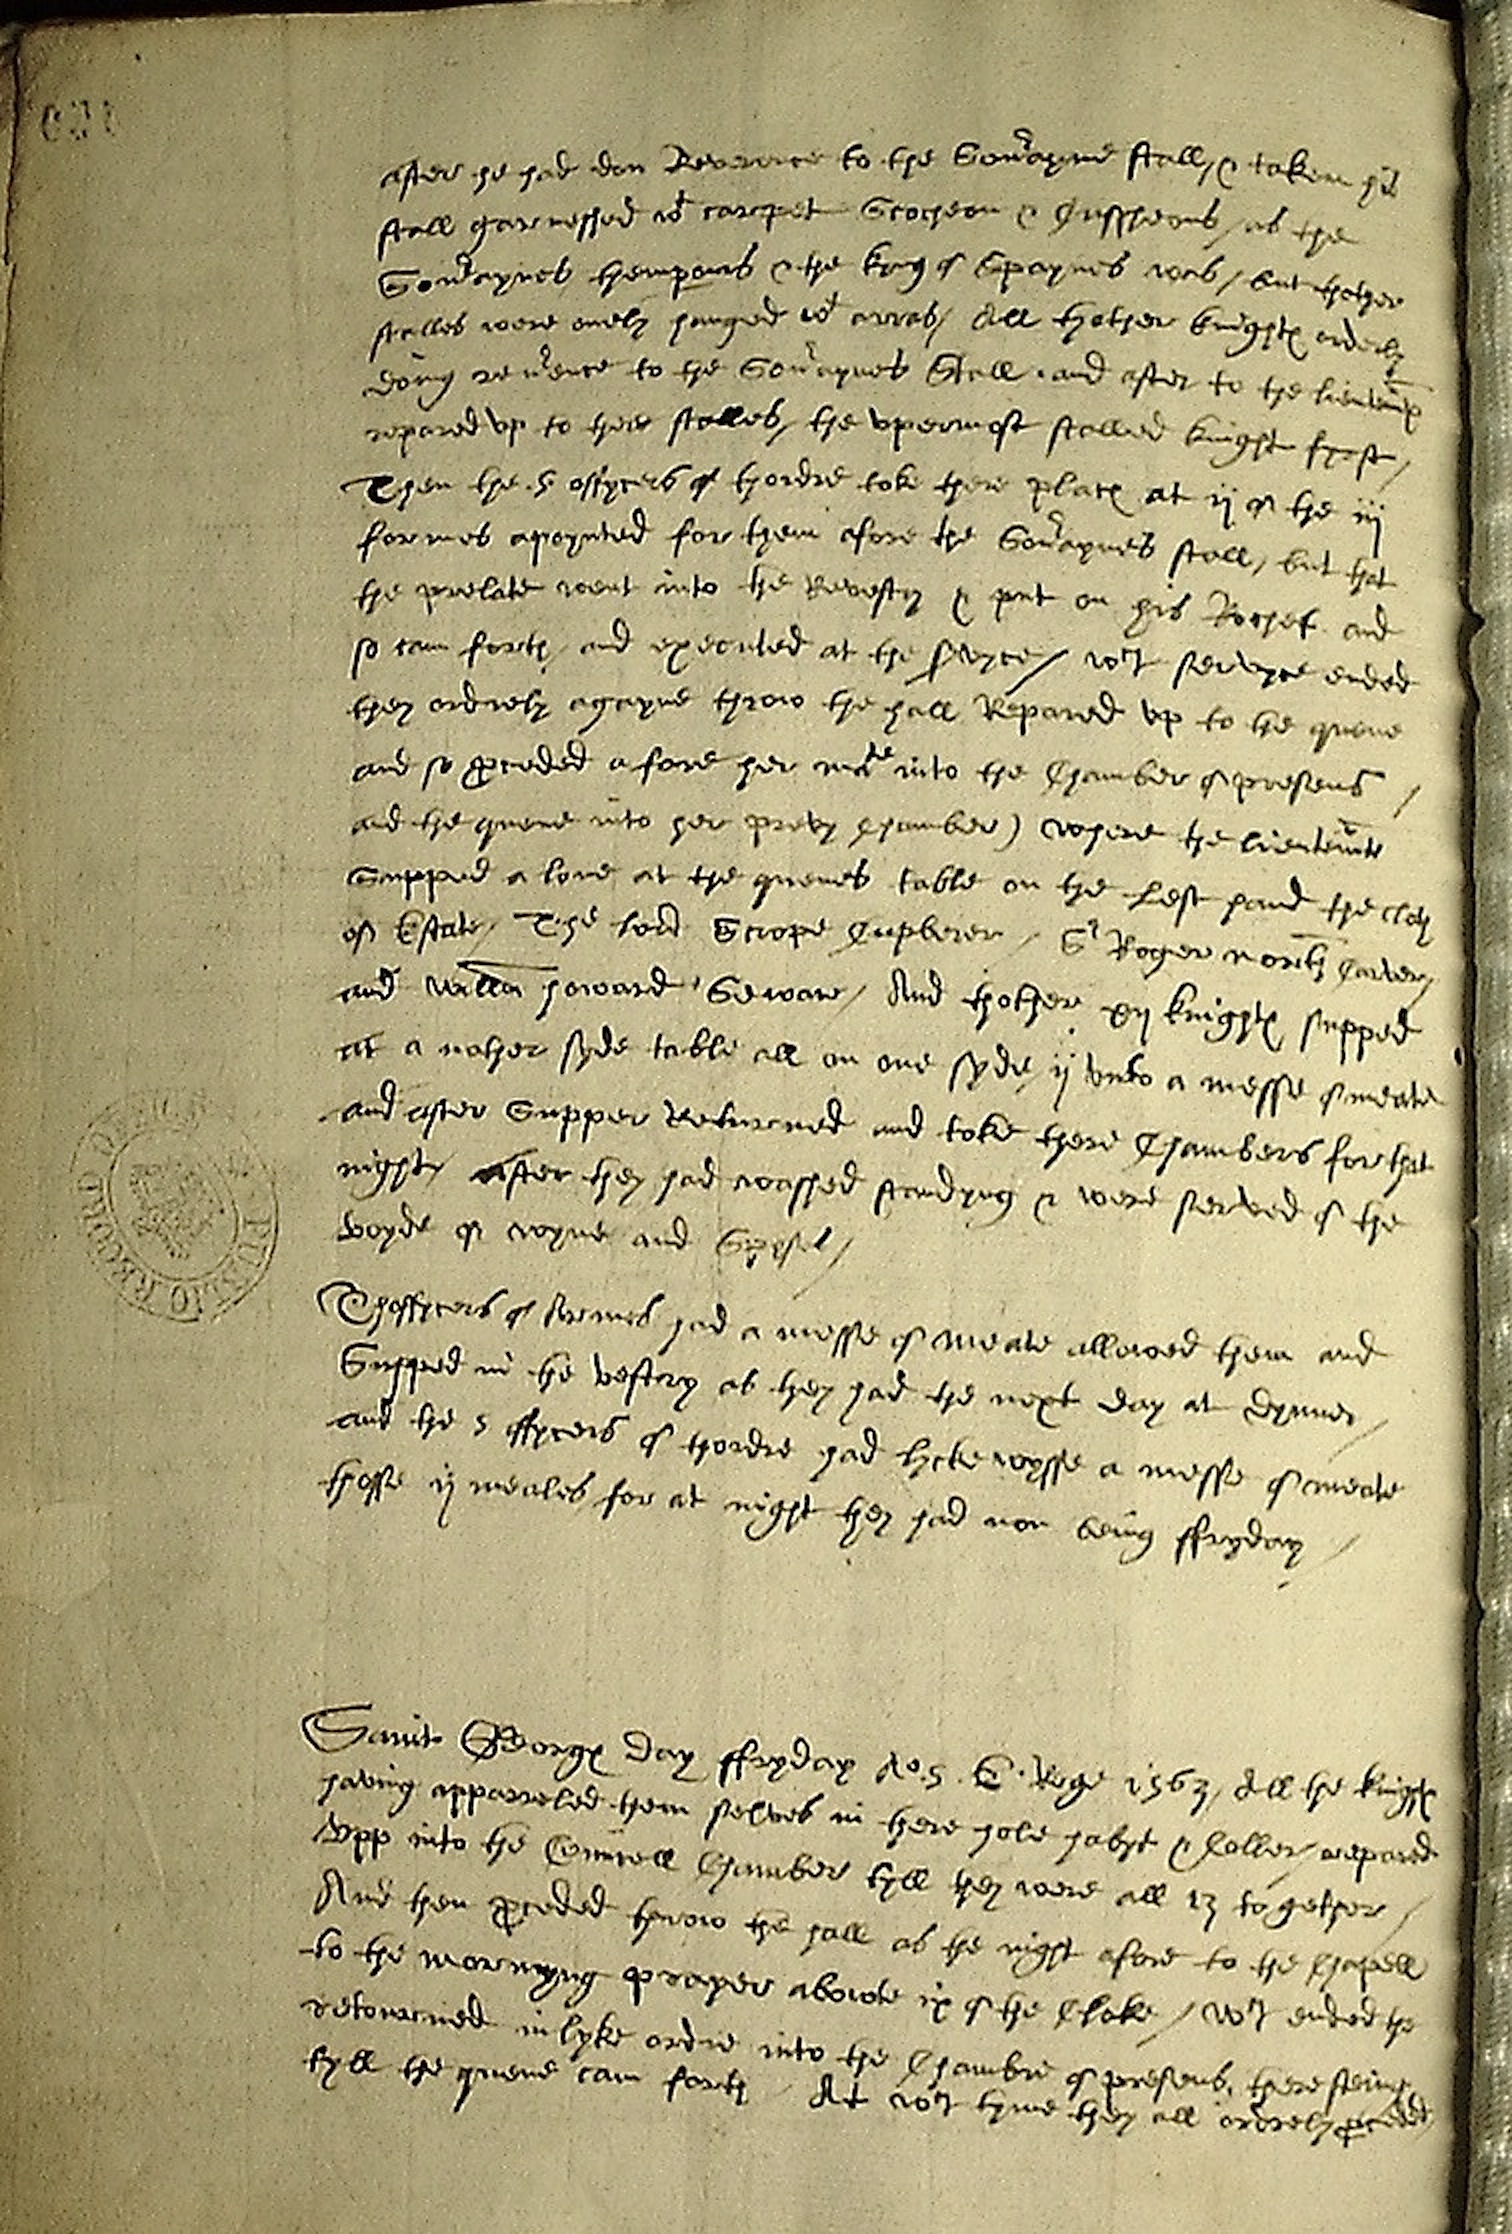 after he had don Reverence to the Sovrayne stall, & taken his
stall garnesshed wt carepet Scocheon & Cussheons, as the
Sovraynes themprours & the kyng of Spaynes was, but thother
stalles were onely hanged wt arras, All thother knightes orderly
doing revrence to the Sovraynes Stall and after to the lieutenntes
repared up to there stalles, the upermost stalled knight fyrst,
Then the 5 offycers of thordre toke there places at ij of the iij
formes apoynted for them afore the Sovraynes stall, but that
the prelate went into the Revestry & put on his Rochet and
so cam forth, and executed at the servyce, wch servyce ended
they ordrely agayne throw the hall Repared up to the quene
and so proceded afore her mate into the Chamber of presens,
and the quene into her prevy Chamber) where the lieutennte
Supped alone at the quenes table on the left hand the cloth
of Estate, The lord Scrope Cupberer, Sr Roger north Carver,
and willm howard Seware, And thother xij knightes supped
at a nother syde table all on one syde, ij unto a messe of meate
and after Supper Returned and toke there Chambers for that
night, after they had washed standyng & were served of the
voyde of wyne and Spyses,
Thoffycers of Armes had a messe of meate allowed them and
Supped in the vestry as they had the next day at dynner,
and the 5 offycers of thordre had lyckewysse a messe of meate
thosse ij meales for at night they had non being ffryday,
Saint Georges day ffryday Ao. 5. E. Rege 1563, All the knightes
having apparreled them selves in there hole habyt & Coller, repared
Upp into the Counsell Chamber tyll they were all 13 together,
And then proceded throw the hall as the night afore to the Chapell
to the mornyng prayer aboute ix of the Cloke, wch ended the
retourned in lyke ordre into the Chambre of presens, there steing
tyll the quene cam forth, At wch tyme they all ordrely proceded
PUBLIC RECORD